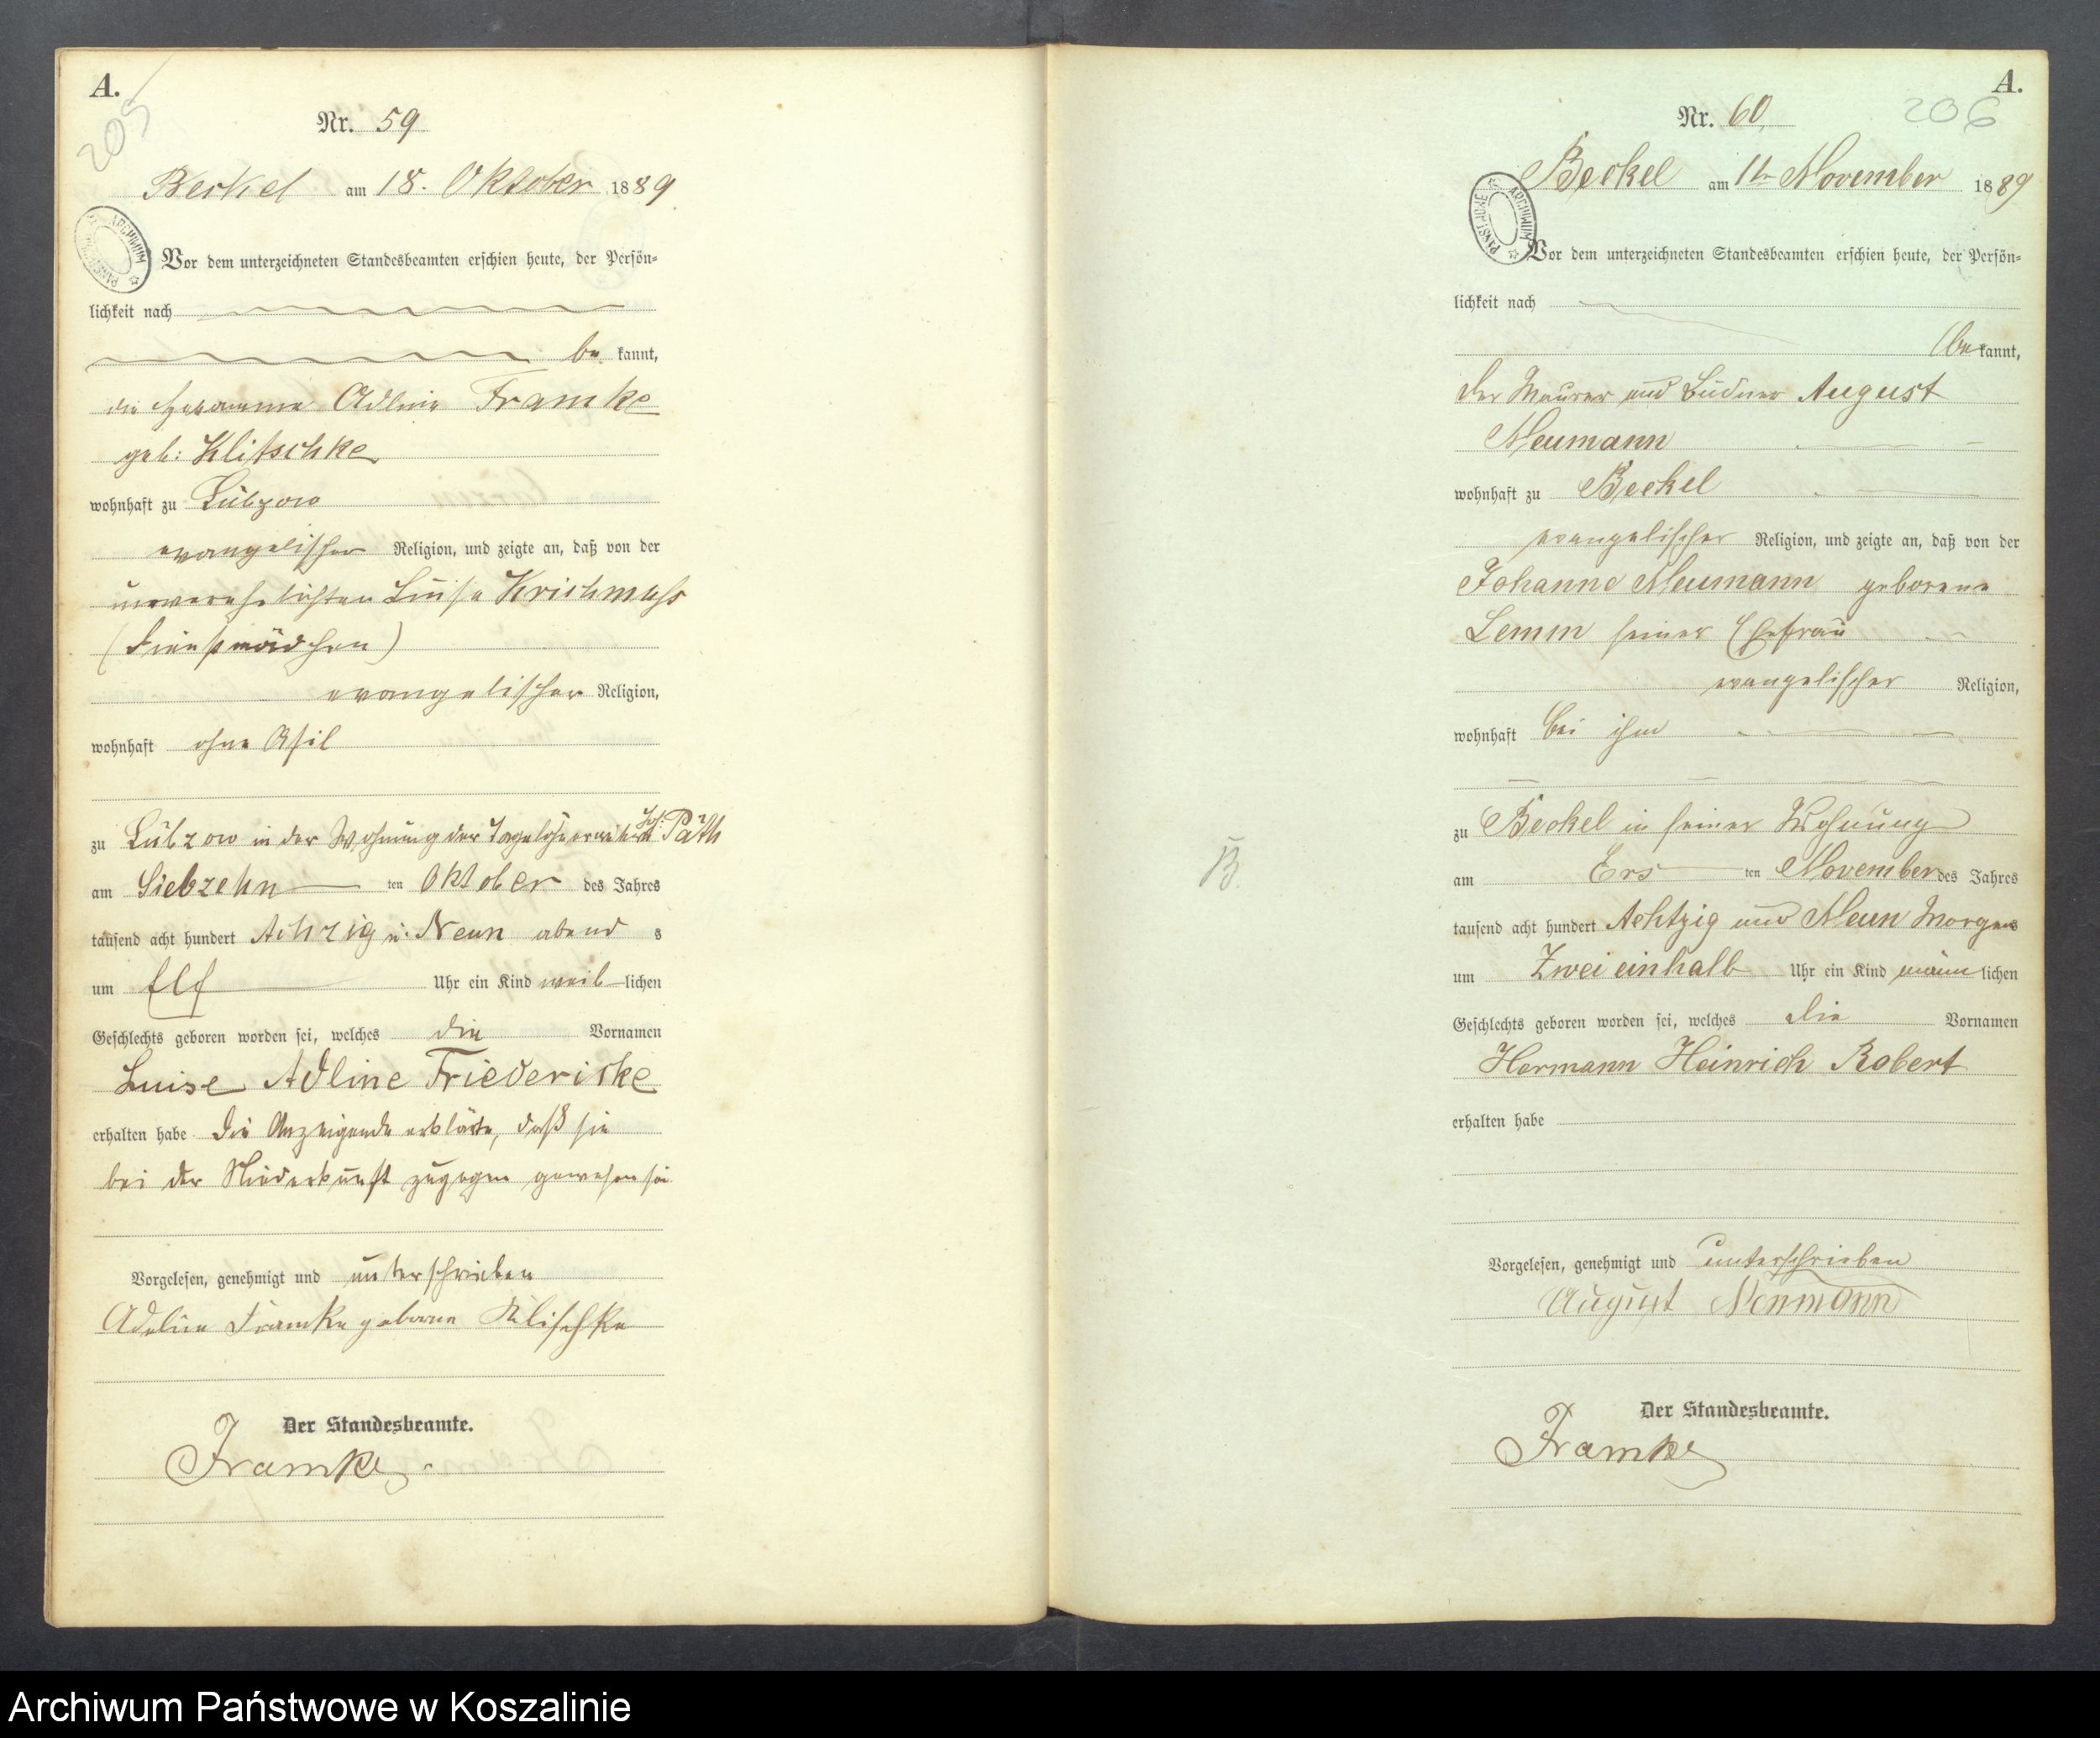 A.
205
Nr. 59
Beckel am 18. Oktober 1889
Vor dem unterzeichneten Standesbeamten erschien heute, der Persön-
lichkeit nach
be kannt,
die Hebamme Adline Framke
geb: Klitschke
wohnhaft zu Lübzow
evangelischer Religion, und zeigte an, daß von der
unverehelichten Luise Krichmuss
(Dienstmädchen)
evangelischer Religion,
wohnhaft ohne Asil
zu Lübzow in der Wohnung der Päth
am Siebzehn ten Oktober des Jahres
tausend acht hundert Achzig u. Neun abend s
um Elf Uhr ein Kind weib lichen
Geschlechts geboren worden sei, welches die Vornamen
Luise Adline Friedericke
erhalten habe Die Anzeigende erklärte, daß sie
bei der Niederkunft zugegen gewesen sei
Vorgelesen, genehmigt und unterschrieben
Adeline Framke geborne Klischke
Der Standesbeamte.
Framke.
A.
206
Nr. 60
Beckel am 1ten November 1889
Vor dem unterzeichneten Standesbeamten erschien heute, der Persön-
lichkeit nach
be kannt,
der Maurer und Büdner August
Neumann
wohnhaft zu Beckel
evangelischer Religion, und zeigte an, daß von der
Johanne Neumann geborene
Lemm seiner Ehefrau
evangelischer Religion,
wohnhaft bei ihm
zu Beckel in seiner Wohnung
am Ers ten November des Jahres
tausend acht hundert Achtzig und Neun Morgens
um Zwei einhalb Uhr ein Kind männ lichen
Geschlechts geboren worden sei, welches die Vornamen
Hermann Heinrich Robert
erhalten habe
Vorgelesen, genehmigt und unterschrieben
August Neumann
Der Standesbeamte.
Framke
B.
ARCHIWUM PAŃSTWOWE
ARCHIWUM PAŃSTWOWE
Archiwum Państwowe w Koszalinie